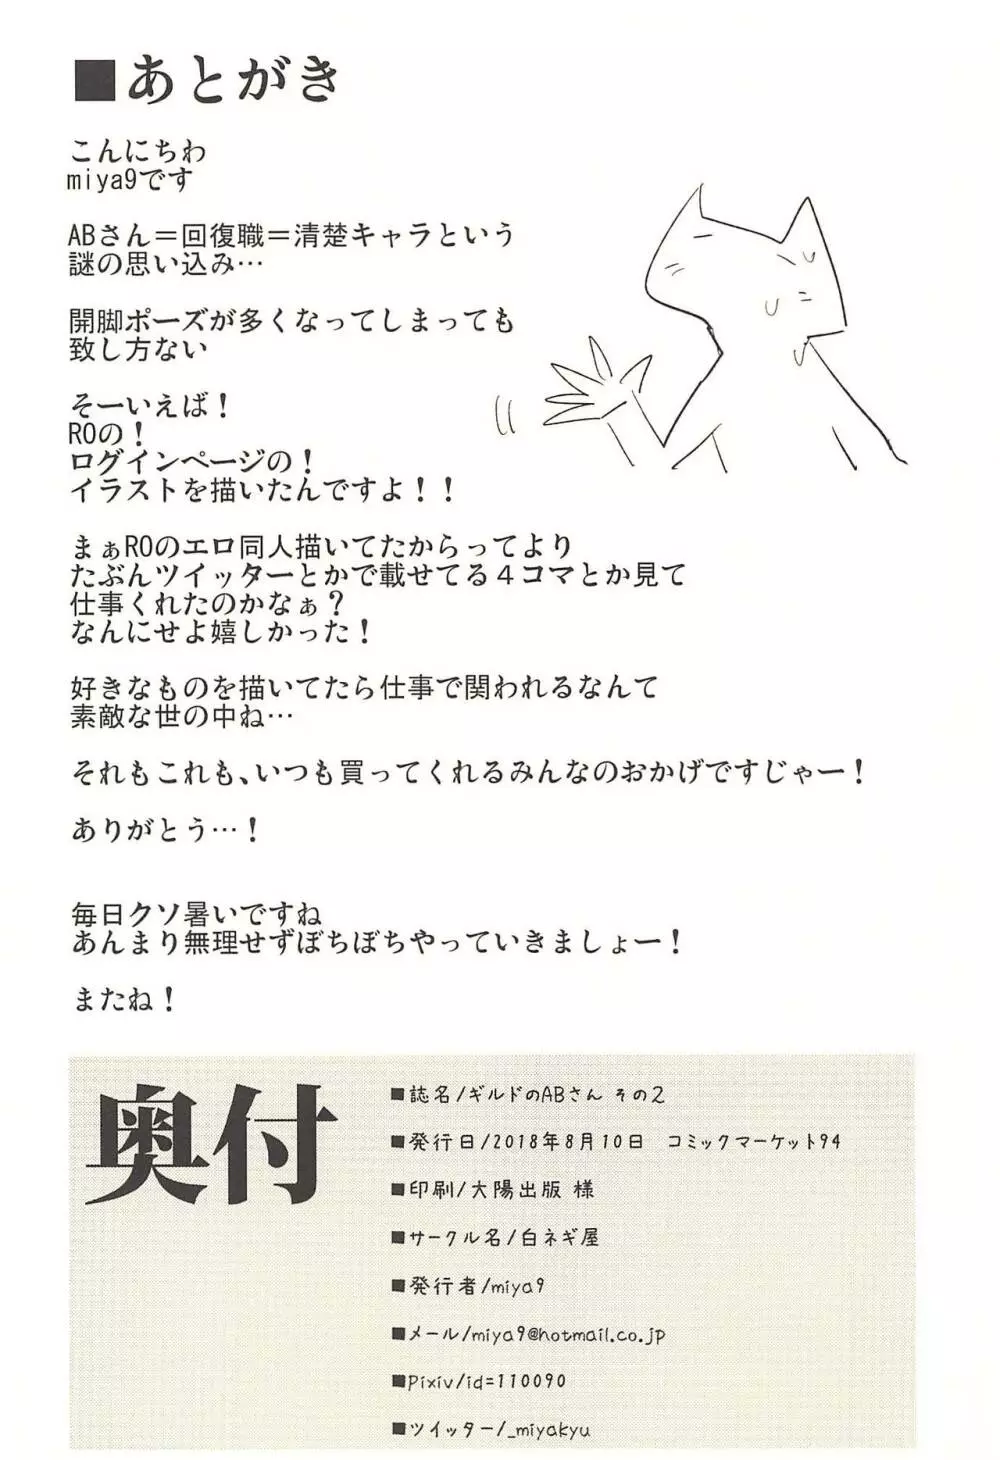 ■あとがき
こんにちわ
miya9です
ABさん＝回復職＝清楚キャラという
謎の思い込み…
開脚ポーズが多くなってしまっても
致し方ない
そーいえば！
ROの！
ログインページの！
イラストを描いたんですよ！！
まぁROのエロ同人描いてたからってより
たぶんツイッターとかで載せてる４コマとか見て
仕事くれたのかなぁ？
なんにせよ嬉しかった！
好きなものを描いてたら仕事で関われるなんて
素敵な世の中ね…
それもこれも、いつも買ってくれるみんなのおかげですじゃー！
ありがとう…！
毎日クソ暑いですね
あんまり無理せずぼちぼちやっていきましょー！
またね！
奥付
■誌名/ギルドのABさん その2
■発行日/2018年8月10日　コミックマーケット94
■印刷/大陽出版 様
■サークル名/白ネギ屋
■発行者/miya9
■メール/miya9@hotmail.co.jp
■Pixiv/id=110090
■ツイッター/_miyakyu